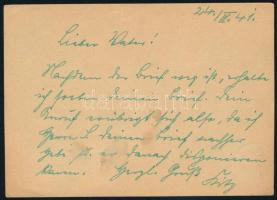 24./III.41.
Lieber Vater!
Nachdem der Brief weg ist, erhalte
ich soeben deinen Brief. Dein
Anruf erübrigt sich also, da ich
Herrn L deinen Brief nachher
gebe u. er danach disponieren
kann. Herzl. Gruß
Fritz